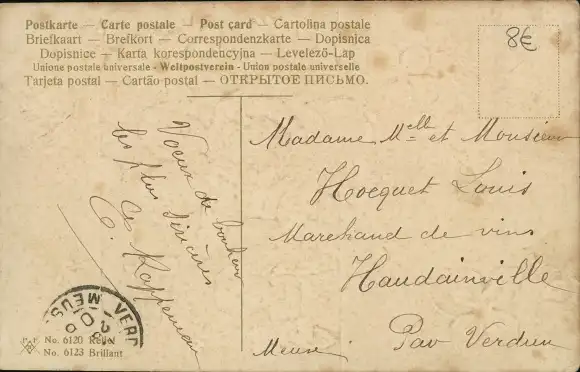 Postkarte — Carte postale — Post card — Cartolina postale
Briefkaart — Brefkort — Correspondenzkarte — Dopisnica
Dopisnice — Karta korespondencyjna — Levelező-Lap
Unione postale universale - Weltpostverein - Union postale universelle
Tarjeta postal — Cartão postal — ОТКРЫТОЕ ПИСЬМО.
8€
Voeux de bonheur
les plus sincères
Madame Melle et Monsieur
Hocquet Louis
Marchand de vins
Haudainville
Par Verdun
Meuse
VERD
MEUS
No. 6120 Relief
No. 6123 Brillant